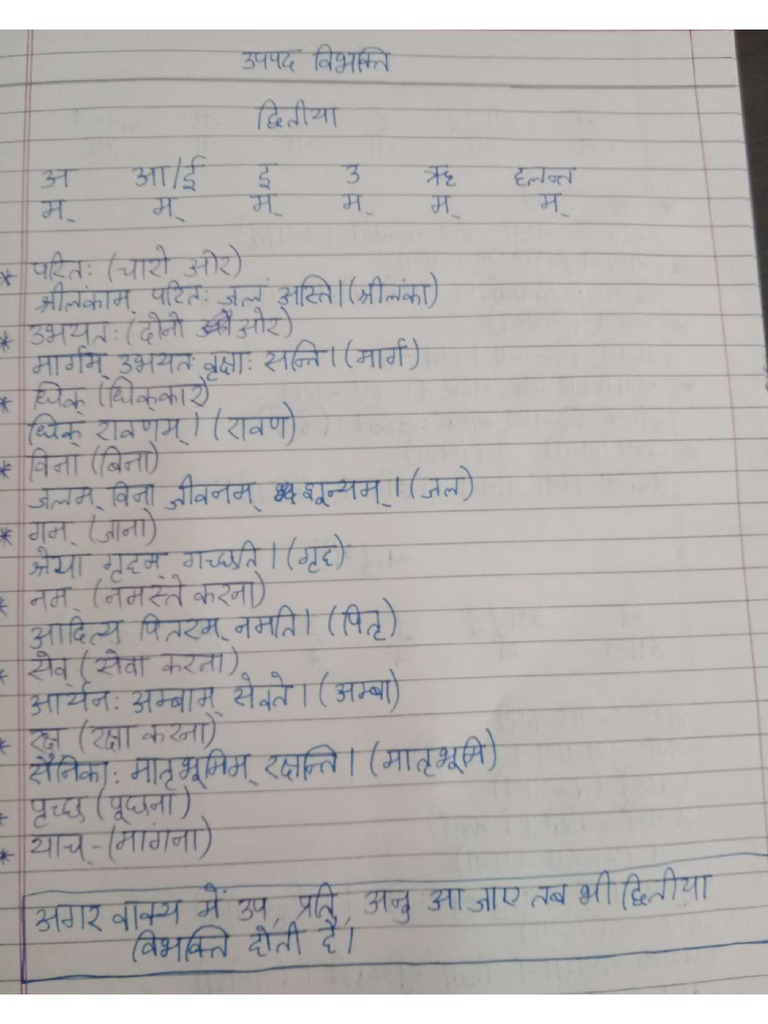 उपपद विभक्ति
द्वितीया
अ आ/ई इ उ ऋ हलन्त
म् म् म् म् म् म्
* परितः (चारो ओर)
श्रीलंकाम् परितः जलं अस्ति। (श्रीलंका)
* उभयतः (दोनो ओर)
मार्गम् उभयतः वृक्षाः सन्ति। (मार्ग)
* धिक् (धिक्कार)
धिक् रावणम्। (रावण)
* विना (बिना)
जलम् विना जीवनम् शून्यम्। (जल)
* गम् (जाना)
श्रेया गृहम् गच्छति। (गृह)
* नम् (नमस्ते करना)
आदित्य पितरम् नमति। (पितृ)
* सेव् (सेवा करना)
आर्यनः अम्बाम् सेवते। (अम्बा)
* रक्ष (रक्षा करना)
सैनिकाः मातृभूमिम् रक्षन्ति। (मातृभूमि)
* पृच्छ (पूछना)
* याच् - (मांगना)
अगर वाक्य में उप, प्रति, अनु आ जाए तब भी द्वितीया
विभक्ति होती है।